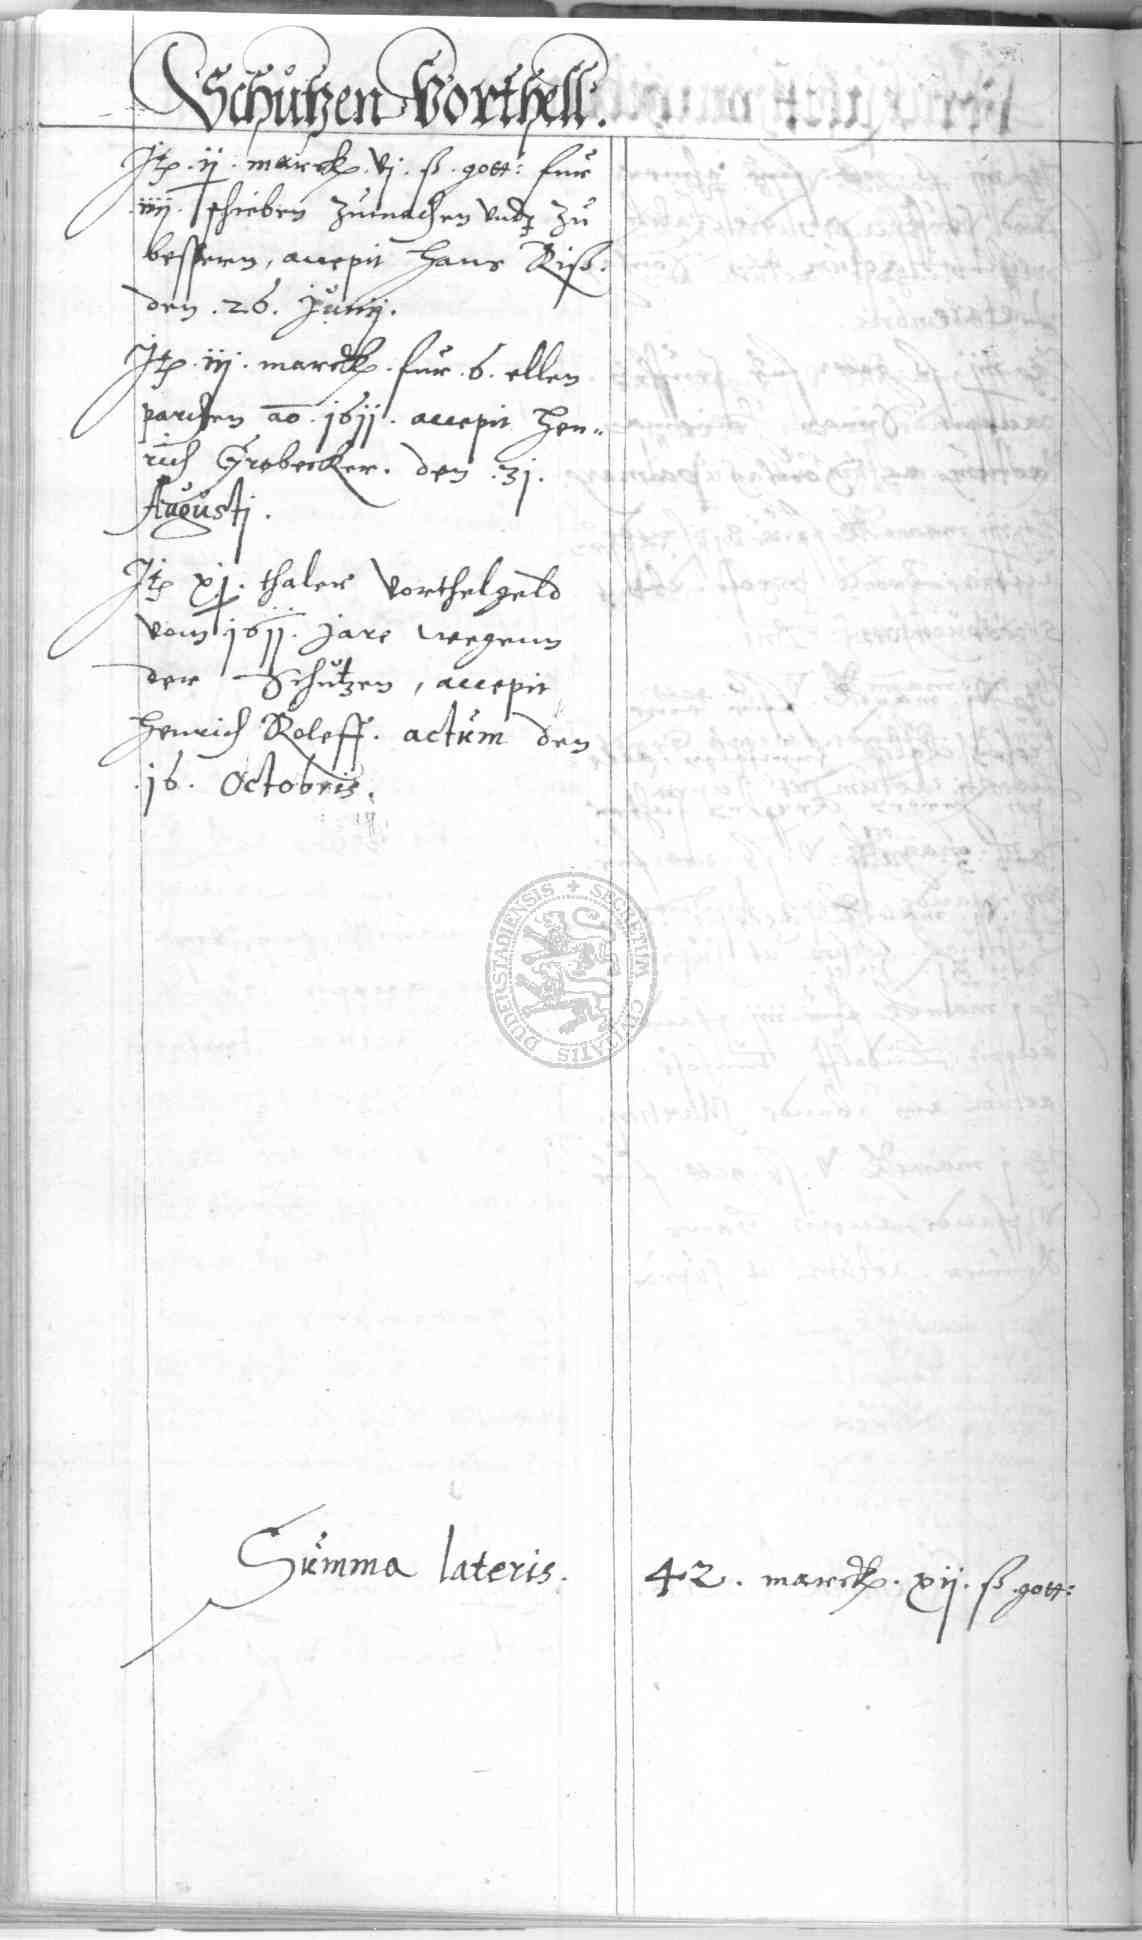 Schützen Vorthell.
Itp. ij. marck. vj. ß. gott: für
.iiij. schieben zumachen vnd zu
bessern, accepit Hans Riß.
den .26. Junij.
Itp. iij. marck. für .6. ellen
parchen ao. 1611. accepit Hen„
rich Grobecker. den .31.
Augusti.
Itp xj. thaler Vorthelgeld
vom 1611. Jare wegenn
der Schützen, accepit
Henrich Roleff. actum den
.16. Octobris.
SECRETUM CIVITATIS DUDERSTADIENSIS
Summa lateris. 42. marck. xij. ß. gott: